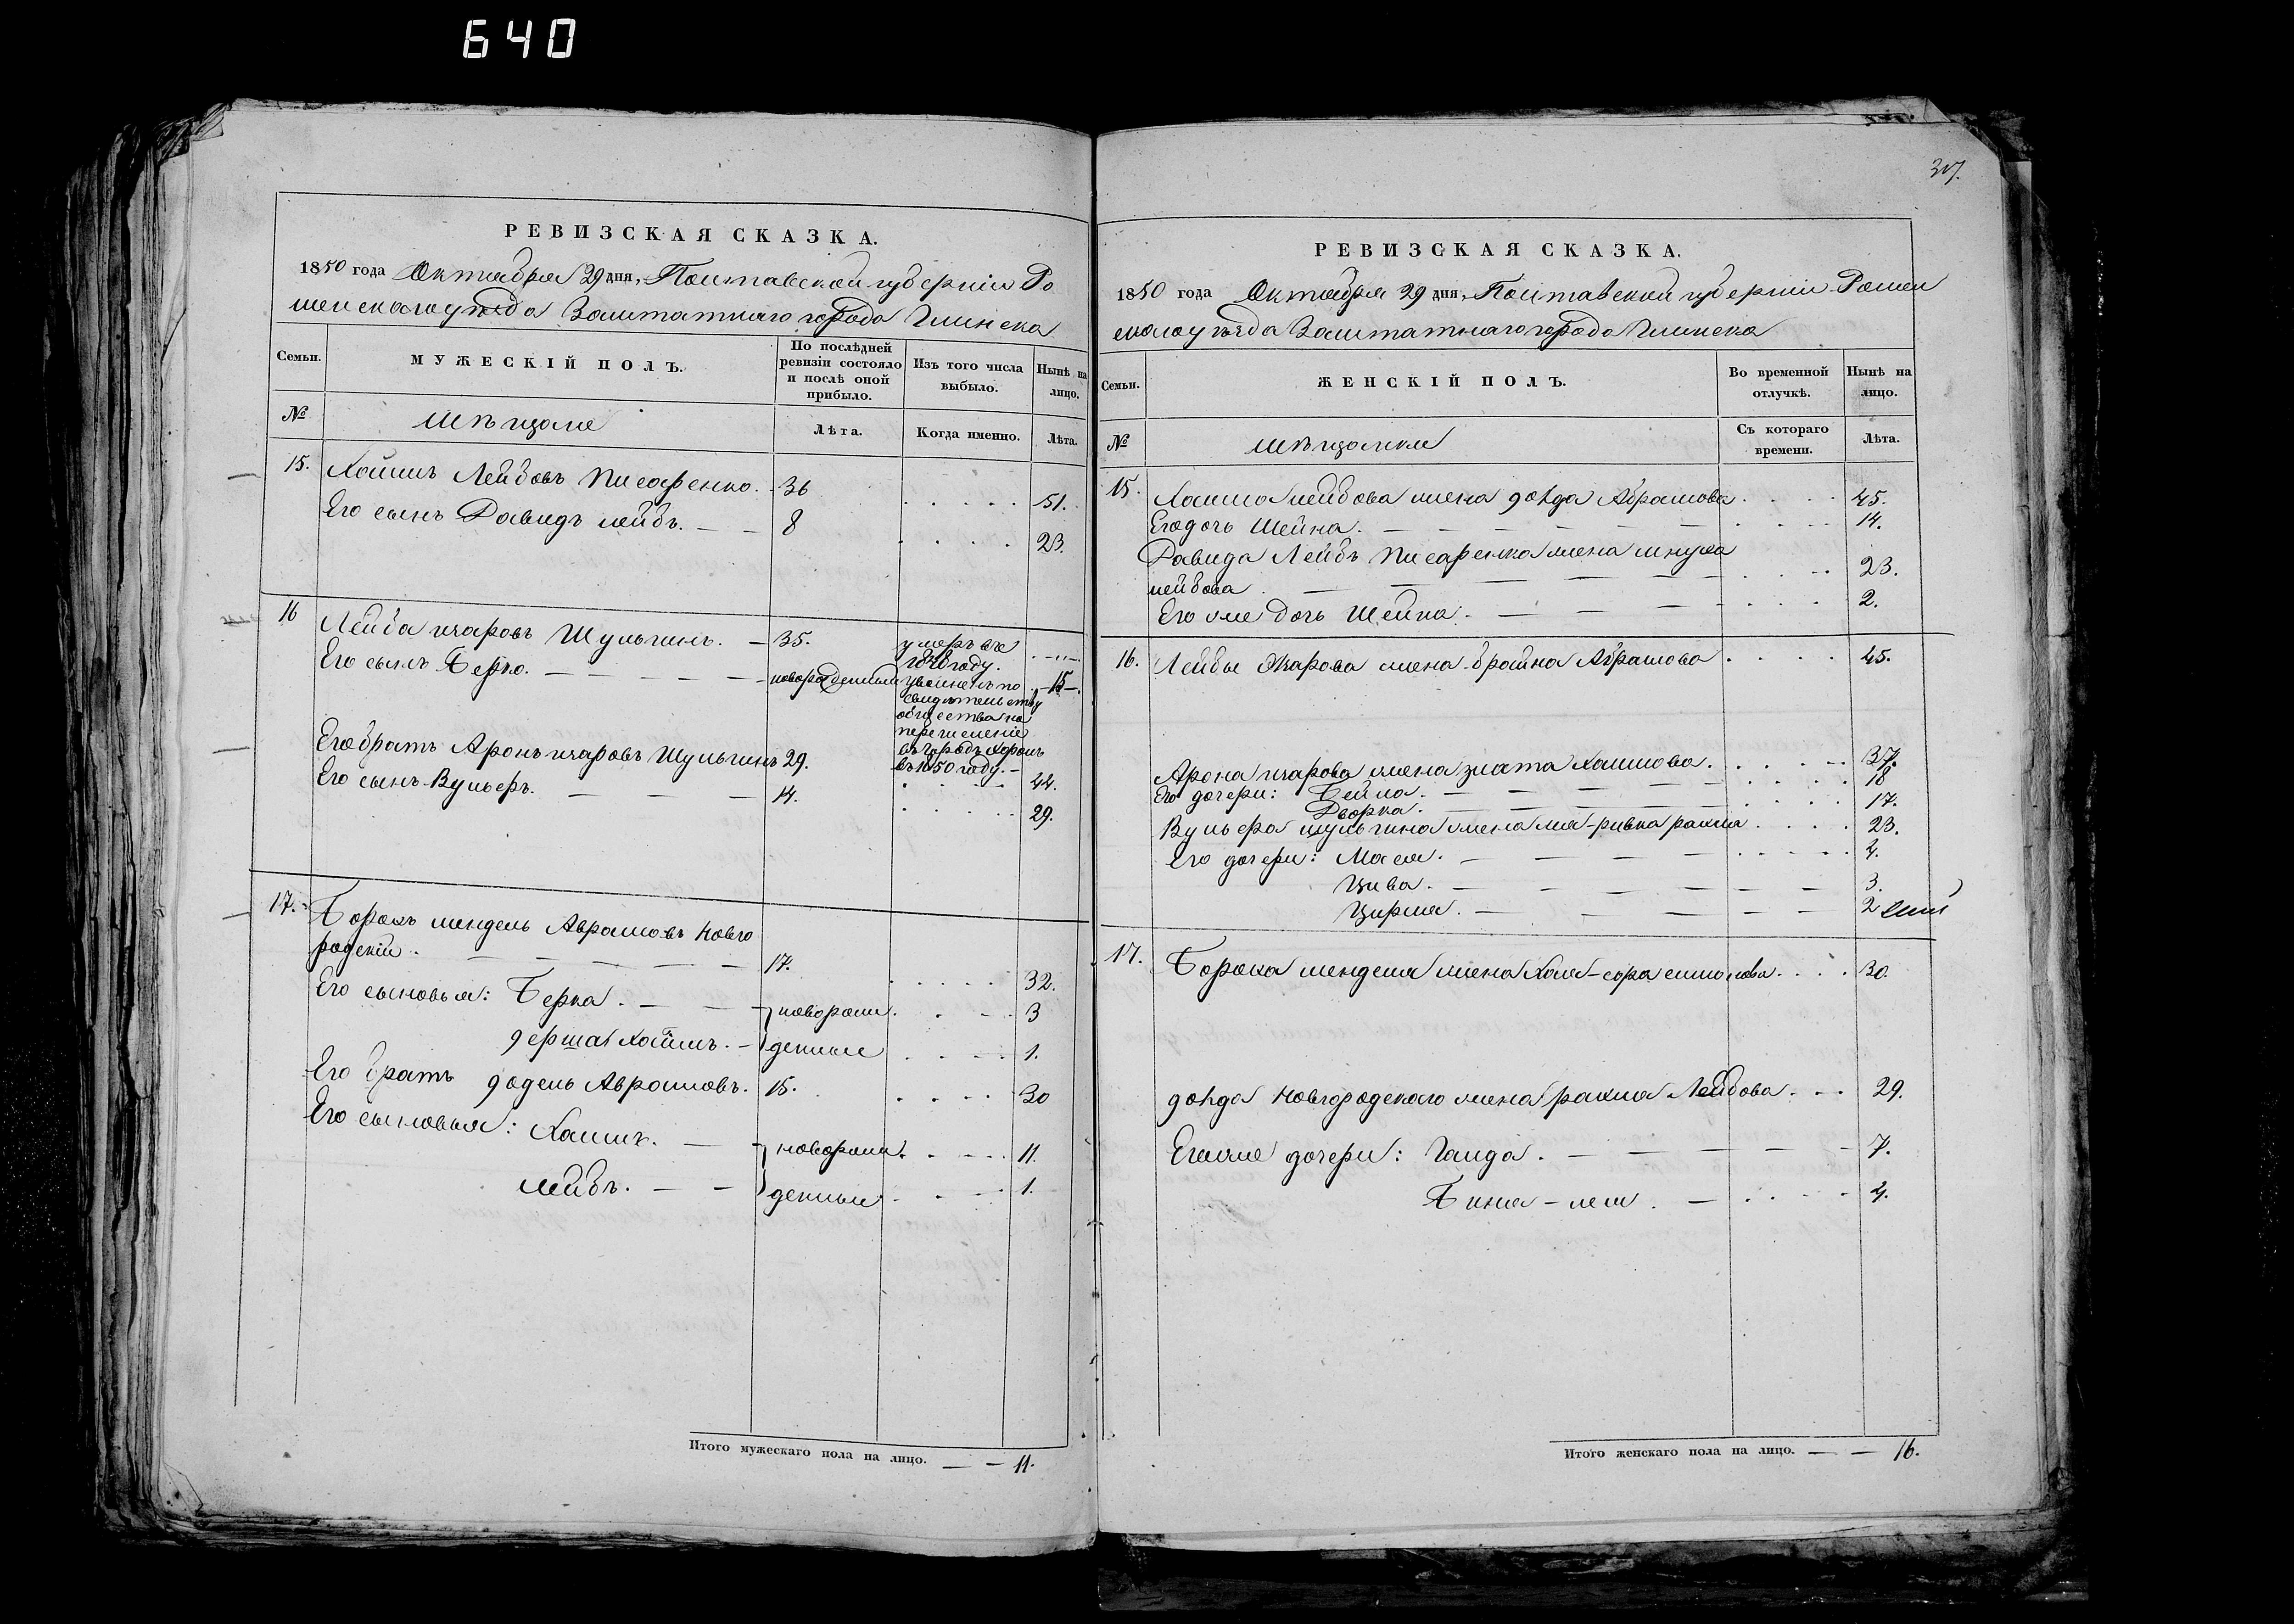 640
РЕВИЗСКАЯ СКАЗКА.
1850 года Октября 29 дня, Полтавской губерніи Ро
менскаго уезда Заштатнаго города Глинска
Семьи.
МУЖЕСКІЙ ПОЛЪ.
По послѣдней ревизіи состояло и послѣ оной прибыло.
Изъ того числа выбыло.
Нынѣ на лицо.
№
Мѣщане
Лѣта.
Когда именно.
Лѣта.
15. Хаимъ Лейбовъ Писаренко. 36 51.
Его сынъ Давидъ лейбъ. 8 23.
16 Лейба ицаровъ Шульгинъ. 35. умеръ въ
1848 году.
Его сынъ Берко. новорожденный уволенъ по 15
свидѣтельству
общества на
перечисленіе
въ городъ
въ 1850 году.
Его братъ Аронъ ицаровъ Шульгинъ 29. 44.
Его сынъ Вульфъ. 14. 29.
17. Борохъ мендель Аврамовъ Новго
родскій. 17. 32.
Его сыновья: Берка. новорож 3
гершан хаимъ. денные 1.
Его братъ додель Аврамовъ. 15. 30
Его сыновья: Хаимъ. новорож 11.
лейбъ. денные 1.
Итого мужескаго пола на лицо. 11.
РЕВИЗСКАЯ СКАЗКА.
1850 года Октября 29 дня, Полтавской губерніи Ромен
скаго уѣзда Заштатнаго города Глинска
Семьи.
ЖЕНСКІЙ ПОЛЪ.
Во временной отлучкѣ.
Нынѣ на лицо.
№
мѣщанки
Съ котораго времени.
Лѣта.
15. Хаима лейбова жена Абрамова 45.
Его дочь Шейна. 14.
Давида Лейбъ Писаренка жена
лейбова 23.
Его же дочь Шейна. 2.
16. Лейбы жена брайна Абрамова 45.
Арона ицарова жена злата Хаимова. 37.
Его дочери: Бейла. 18
Дворка. 17.
Вульфа шульгина жена ривка 23.
Его дочери: Мася. 4.
Цива. 3.
Цирля. 2
17. Бороха менделя жена Хая-сора 30.
Новгородскаго жена рахля Лейбова 29.
Его же дочери: 7.
4.
Итого женскаго пола на лицо. 16.